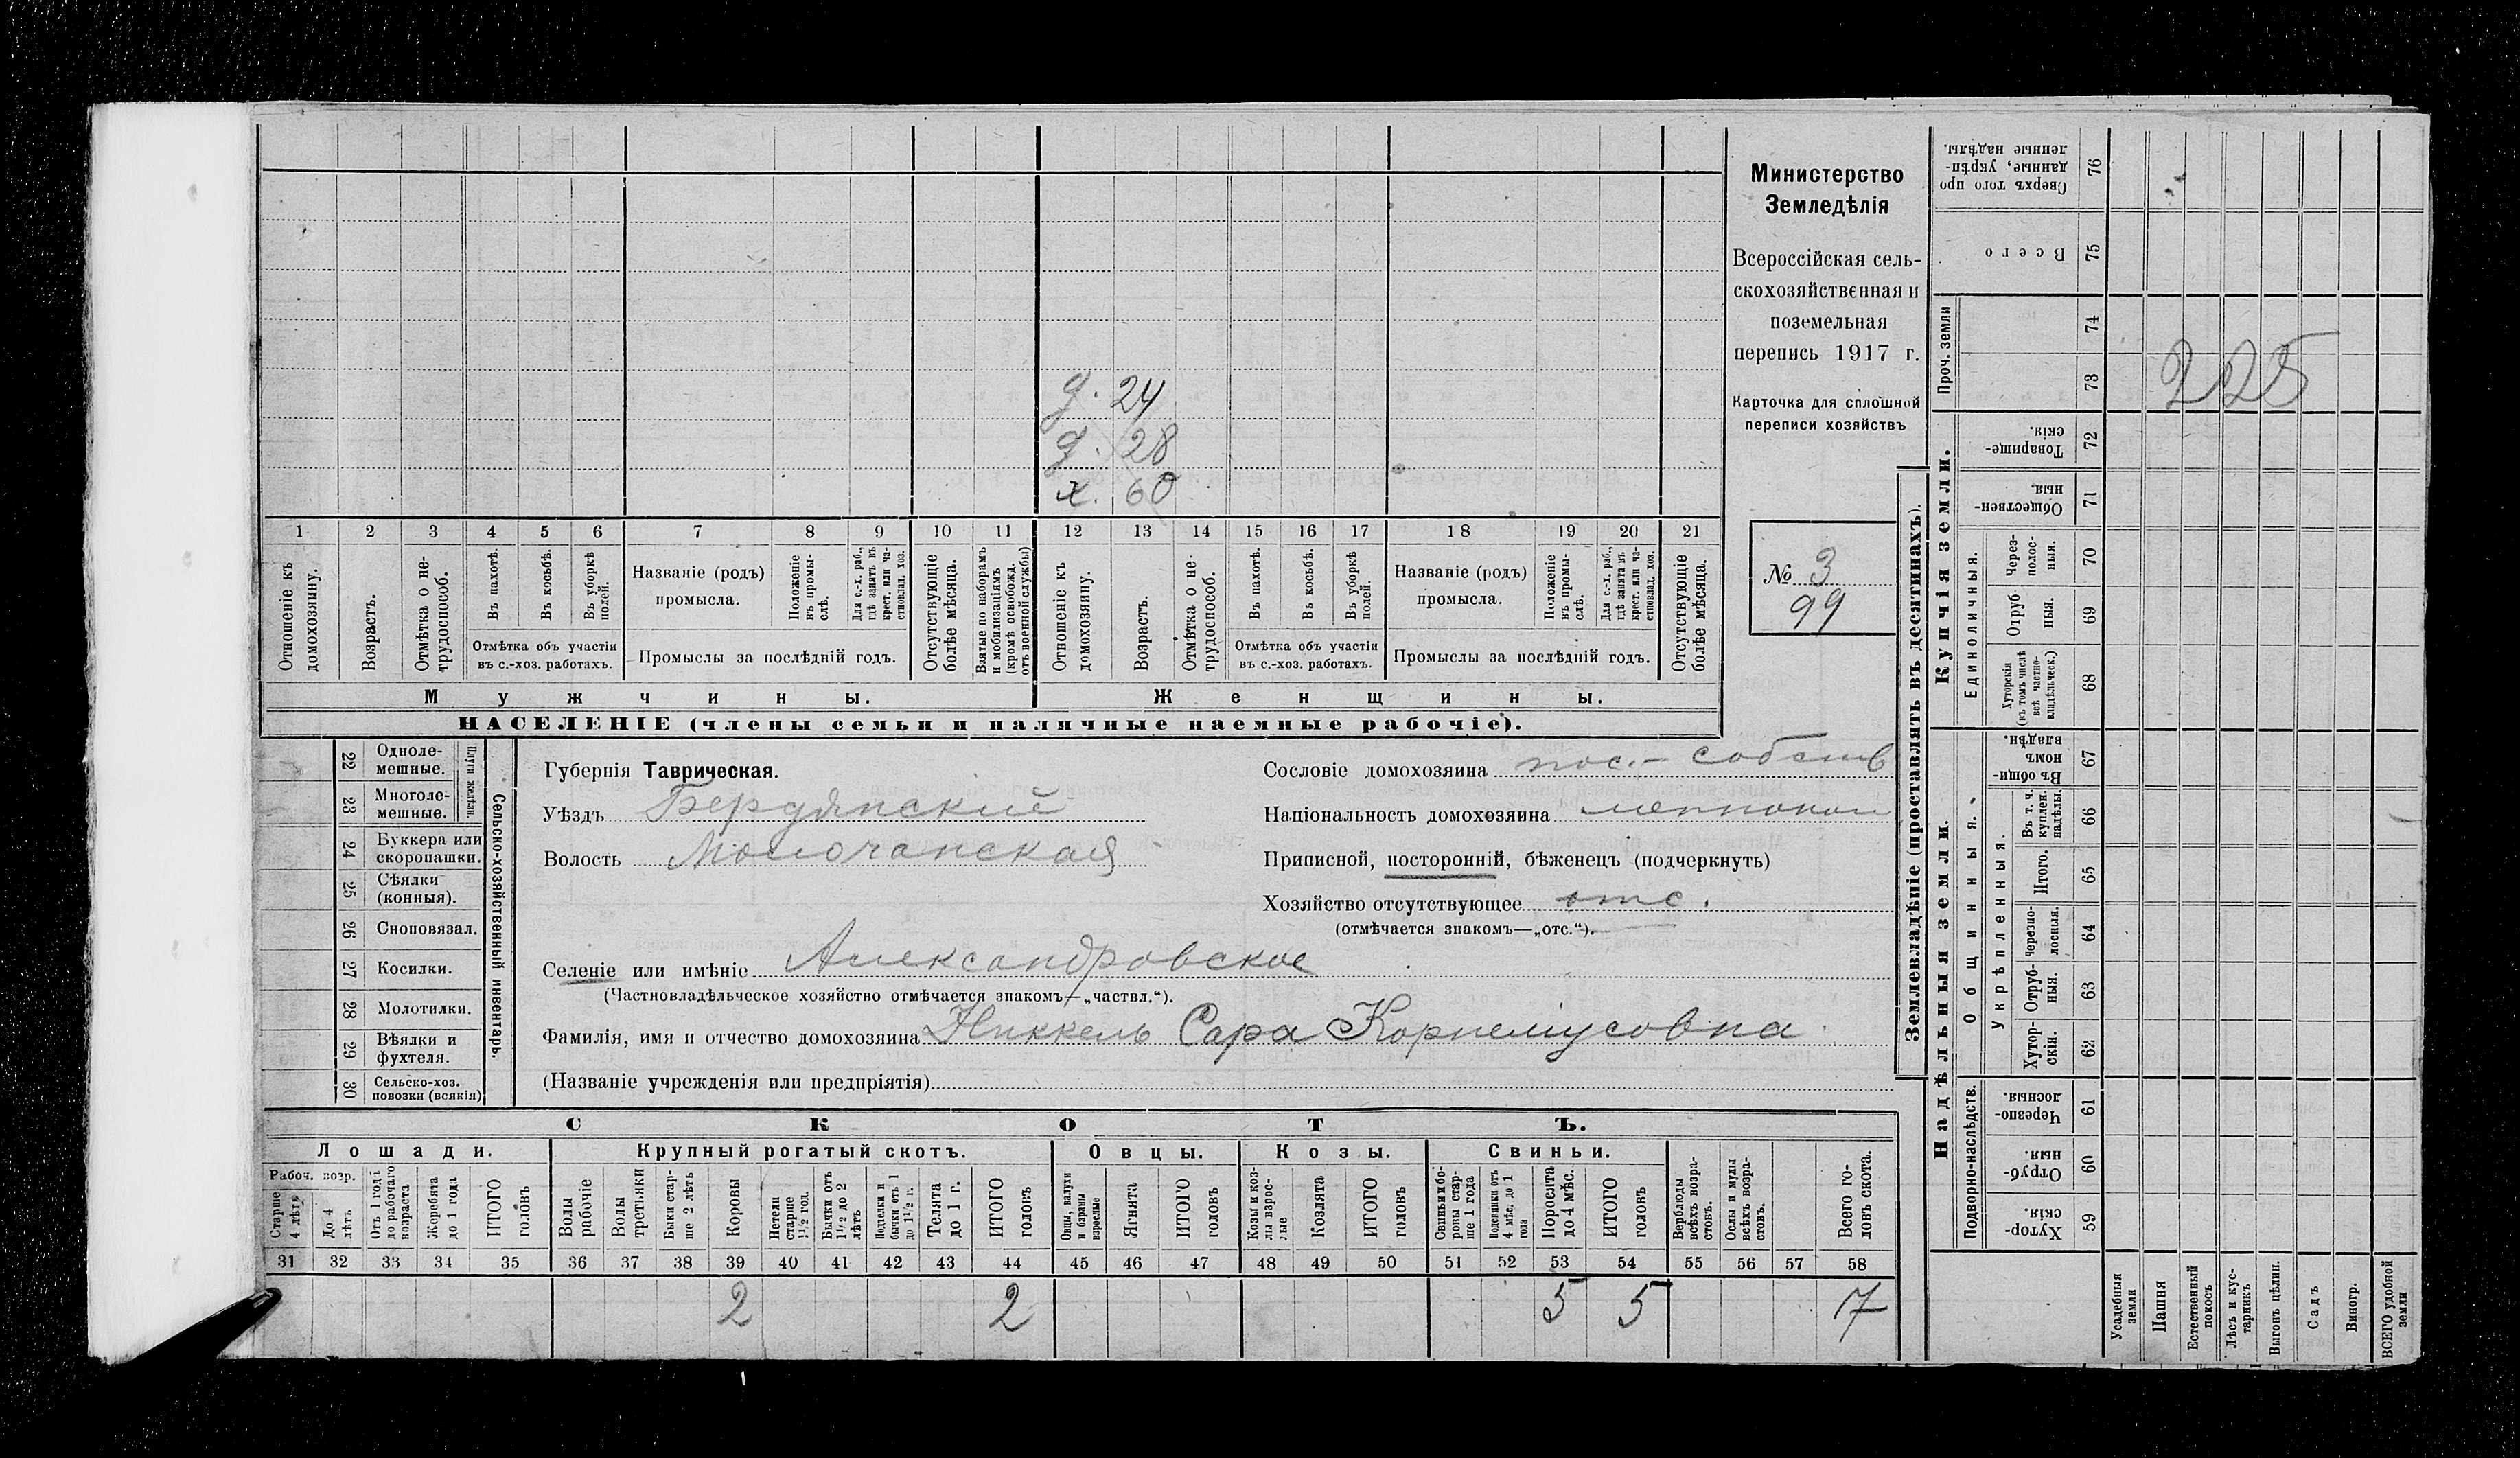 Министерство
Земледѣлія
Всероссійская сель-
скохозяйственная и
поземельная
перепись 1917 г.
Карточка для сплошной
переписи хозяйствъ
№ 3
99
д. 24
д. 28
х. 60
1 2 3 4 5 6 7 8 9 10 11 12 13 14 15 16 17 18 19 20 21
Отношеніе къ домохозяину.
Возрастъ.
Отмѣтка о не-трудоспособ.
Въ пахотѣ.
Въ косьбѣ.
Въ уборкѣ полей.
Отмѣтка объ участіи
въ с.-хоз. работахъ.
Названіе (родъ)
промысла.
Положеніе въ промы-слѣ.
Для с.-х. раб., гдѣ занятъ въ крест. или ча-стновлад. хоз.
Промыслы за послѣдній годъ.
Отсутствующіе болѣе мѣсяца.
Взятые по наборамъ и мобилизаціямъ (кромѣ освобожд. отъ военной службы)
Отношеніе къ домохозяину.
Возрастъ.
Отмѣтка о не-трудоспособ.
Въ пахотѣ.
Въ косьбѣ.
Въ уборкѣ полей.
Отмѣтка объ участіи
въ с.-хоз. работахъ.
Названіе (родъ)
промысла.
Положеніе въ промы-слѣ.
Для с.-х. раб., гдѣ занята въ крест. или ча-стновлад. хоз.
Промыслы за послѣдній годъ.
Отсутствующіе болѣе мѣсяца.
Мужчины.
Женщины.
НАСЕЛЕНІЕ (члены семьи и наличные наемные рабочіе).
22 Одноле-мешные.
23 Многоле-мешные.
Плуги желѣзн.
24 Буккера или скоропашки.
25 Сѣялки (конныя).
26 Сноповязал.
27 Косилки.
28 Молотилки.
29 Вѣялки и фухтеля.
30 Сельско-хоз. повозки (всякія)
Сельско-хозяйственный инвентарь.
Губернія Таврическая.
Уѣздъ Бердянский
Волость Молочанская
Сословіе домохозяина пос.- собств
Національность домохозяина меннонит
Приписной, посторонній, бѣженецъ (подчеркнуть)
Хозяйство отсутствующее отс.
(отмѣчается знакомъ—„отс.“).
Селеніе или имѣніе Александровское
(Частновладѣльческое хозяйство отмѣчается знакомъ—„частвл.“).
Фамилія, имя и отчество домохозяина Никкель Сара Корнеліусовна
(Названіе учрежденія или предпріятія)
СКОТЪ.
Лошади. Крупный рогатый скотъ. Овцы. Козы. Свиньи.
Рабоч. возр.
Старше 4 лѣтъ
До 4 лѣтъ
Отъ 1 года до рабочаго возраста
Жеребята до 1 года
ИТОГО головъ
Волы рабочіе
Волы третьяки
Быки стар-ше 2 лѣтъ
Коровы
Нетели старше 1½ год.
Бычки отъ 1½ до 2 лѣтъ
Подтелки и бычки отъ 1 до 1½ г.
Телята до 1 г.
ИТОГО головъ
Овцы, валухи и бараны взрослые
Ягнята
ИТОГО головъ
Козы и коз-лы взрос-лые
Козлята
ИТОГО головъ
Свиньи и бо-ровы стар-ше 1 года
Подсвинки отъ 4 мѣс. до 1 года
Поросята до 4 мѣс.
ИТОГО головъ
Верблюды всѣхъ возра-стовъ.
Ослы и мулы всѣхъ возра-стовъ.
Всего го-ловъ скота.
31 32 33 34 35 36 37 38 39 40 41 42 43 44 45 46 47 48 49 50 51 52 53 54 55 56 57 58
2 2 5 5 7
Землевладѣніе (проставлять въ десятинахъ).
Купчія земли.
Надѣльныя земли.
Проч. земли
Единоличныя.
Общинныя.
Укрѣпленныя.
Подворно-наслѣдств.
Сверхъ того про-данные, укрѣп-ленные надѣлы. 76
Всего 75
74
73
Товарище-скія. 72
Обществен-ныя. 71
Через-полос-ныя. 70
Отруб-ныя. 69
Хуторскія (въ томъ числѣ всѣ частно-владѣльческ.) 68
Въ общи-номъ владѣн. 67
Въ т. ч. куплен. надѣлы. 66
Итого. 65
Черезпо-лосныя. 64
Отруб-ныя. 63
Хутор-скія. 62
Черезпо-лосныя. 61
Отруб-ныя. 60
Хутор-скія. 59
Усадебныя земли
Пашня
Естественный покосъ
Лѣсъ и кус-тарникъ
Выгонъ цѣлин.
Садъ
Виногр.
ВСЕГО удобной земли
225